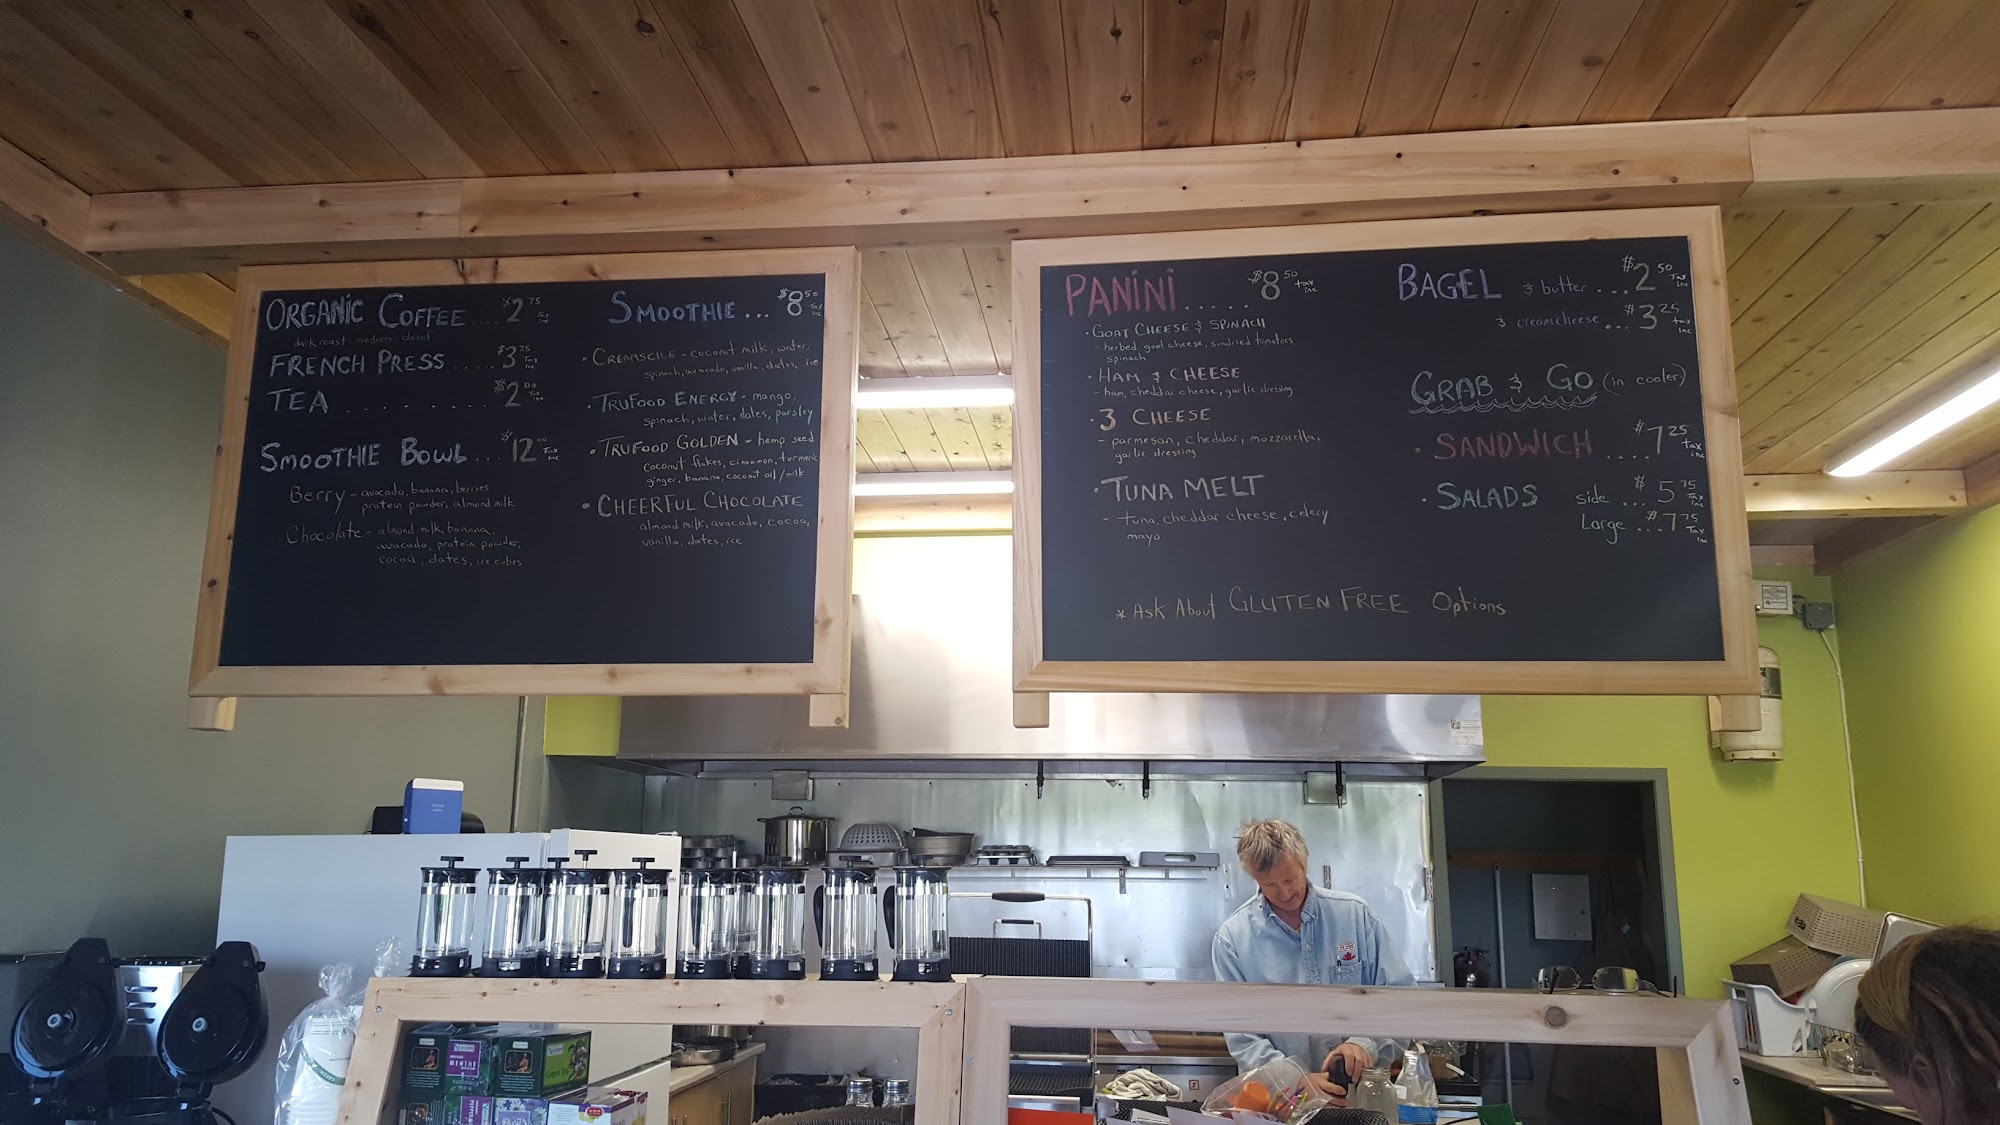 ORGANIC COFFEE .... $2.75 Tax inc
dark roast - medium - decaf
FRENCH PRESS ..... $3.25 Tax inc
TEA ......... $2.00 Tax inc
SMOOTHIE BOWL ... $12.00 Tax inc
Berry - avocado, banana, berries
protein powder, almond milk
Chocolate - almond milk, banana,
avacado, protein powder,
cocoa, dates, ice cubes
SMOOTHIE ... $8.50 Tax inc
• CREAMSCILE - coconut milk, water,
spinach, avacado, vanilla, dates, ice
• TRUFOOD ENERGY - mango,
spinach, water, dates, parsley
• TRUFOOD GOLDEN - hemp seed
coconut flakes, cinnamon, turmeric
ginger, banana, coconut oil/milk
• CHEERFUL CHOCOLATE
almond milk, avacado, cocoa,
vanilla, dates, ice
PANINI ..... $8.50 tax inc
• GOAT CHEESE & SPINACH
- herbed goat cheese, sundried tomatoes,
spinach
• HAM & CHEESE
- ham, cheddar cheese, garlic dressing
• 3 CHEESE
- parmesan, cheddar, mozzarella,
garlic dressing
• TUNA MELT
- tuna, cheddar cheese, celery
mayo
BAGEL & butter ... $2.50 Tax inc
& creamcheese ... $3.25 tax inc
GRAB & GO (in cooler)
• SANDWICH .... $7.25 tax inc
• SALADS side ... $5.75 Tax inc
Large ... $7.75 Tax inc
* ASK ABOUT GLUTEN FREE Options
MENTHE
Green Tea